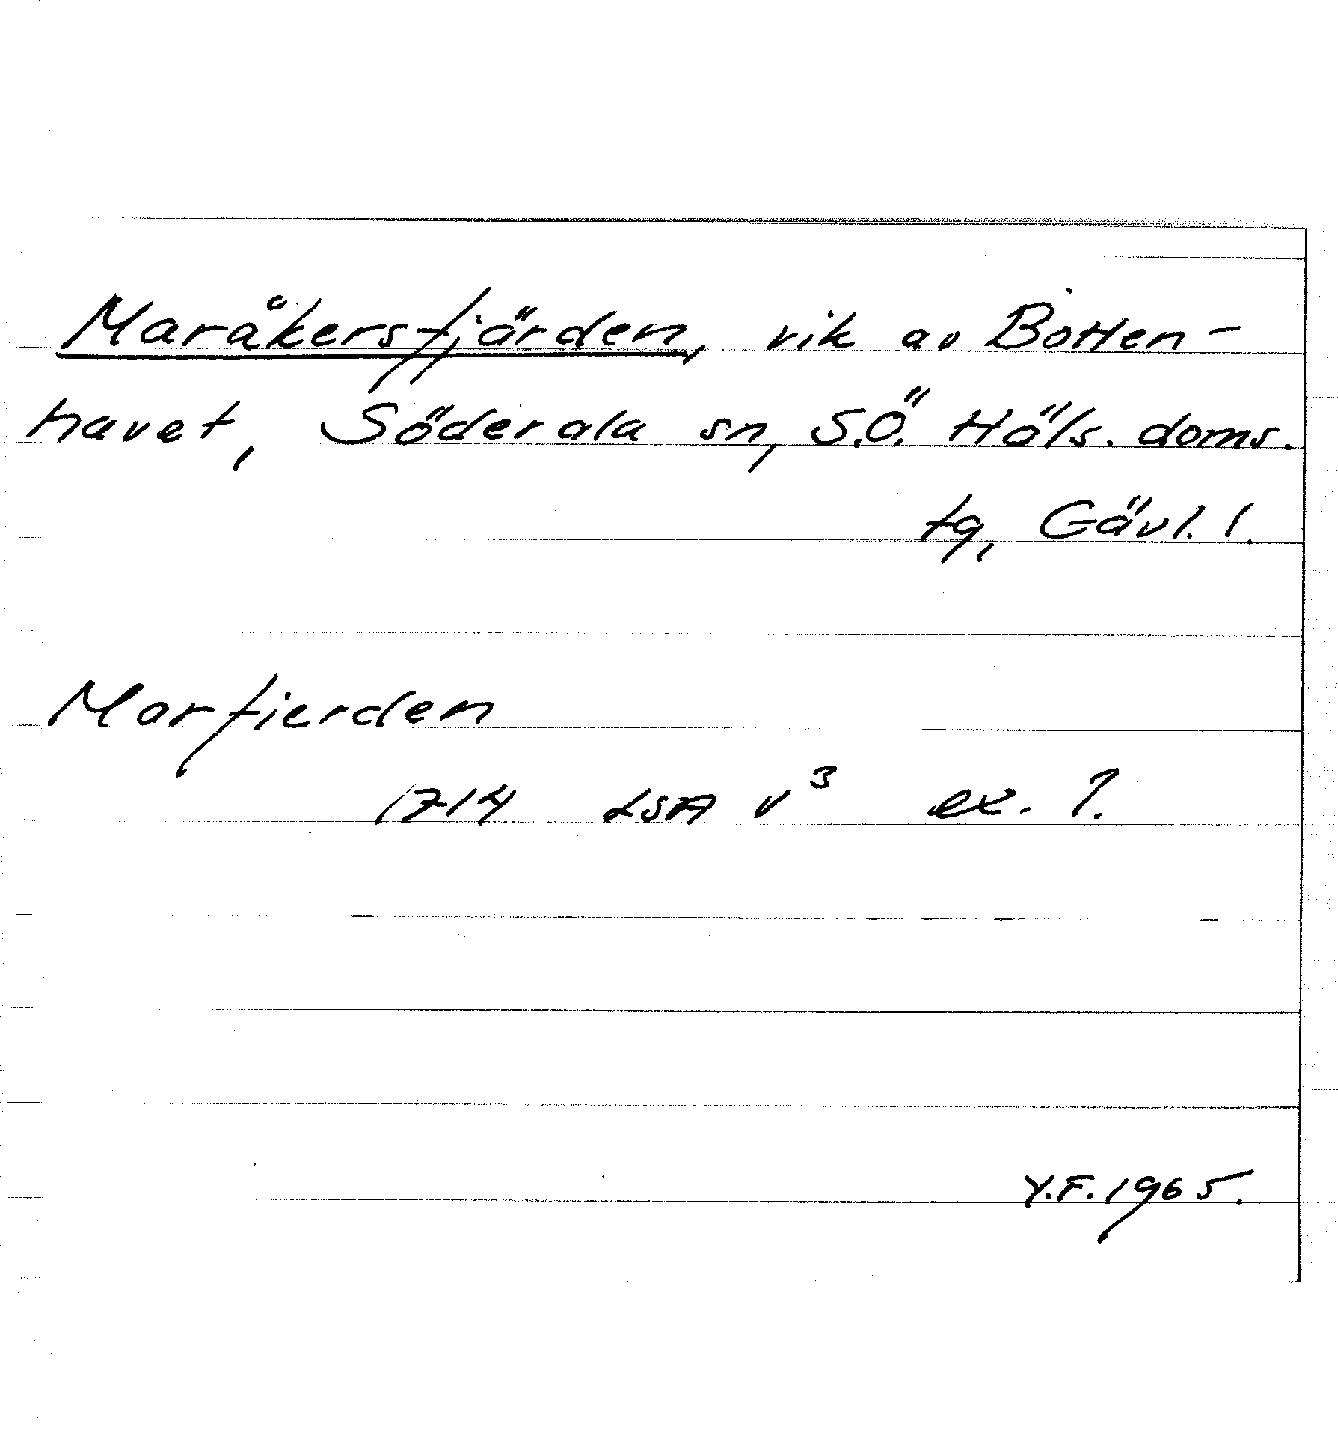 Maråkersfjärden, vik av Botten-
havet, Söderala sn, S.Ö. Häls. doms.
tg, Gävl. l.
Marfierden
1714 LSA v³ ex. ?.
Y.F. 1965.